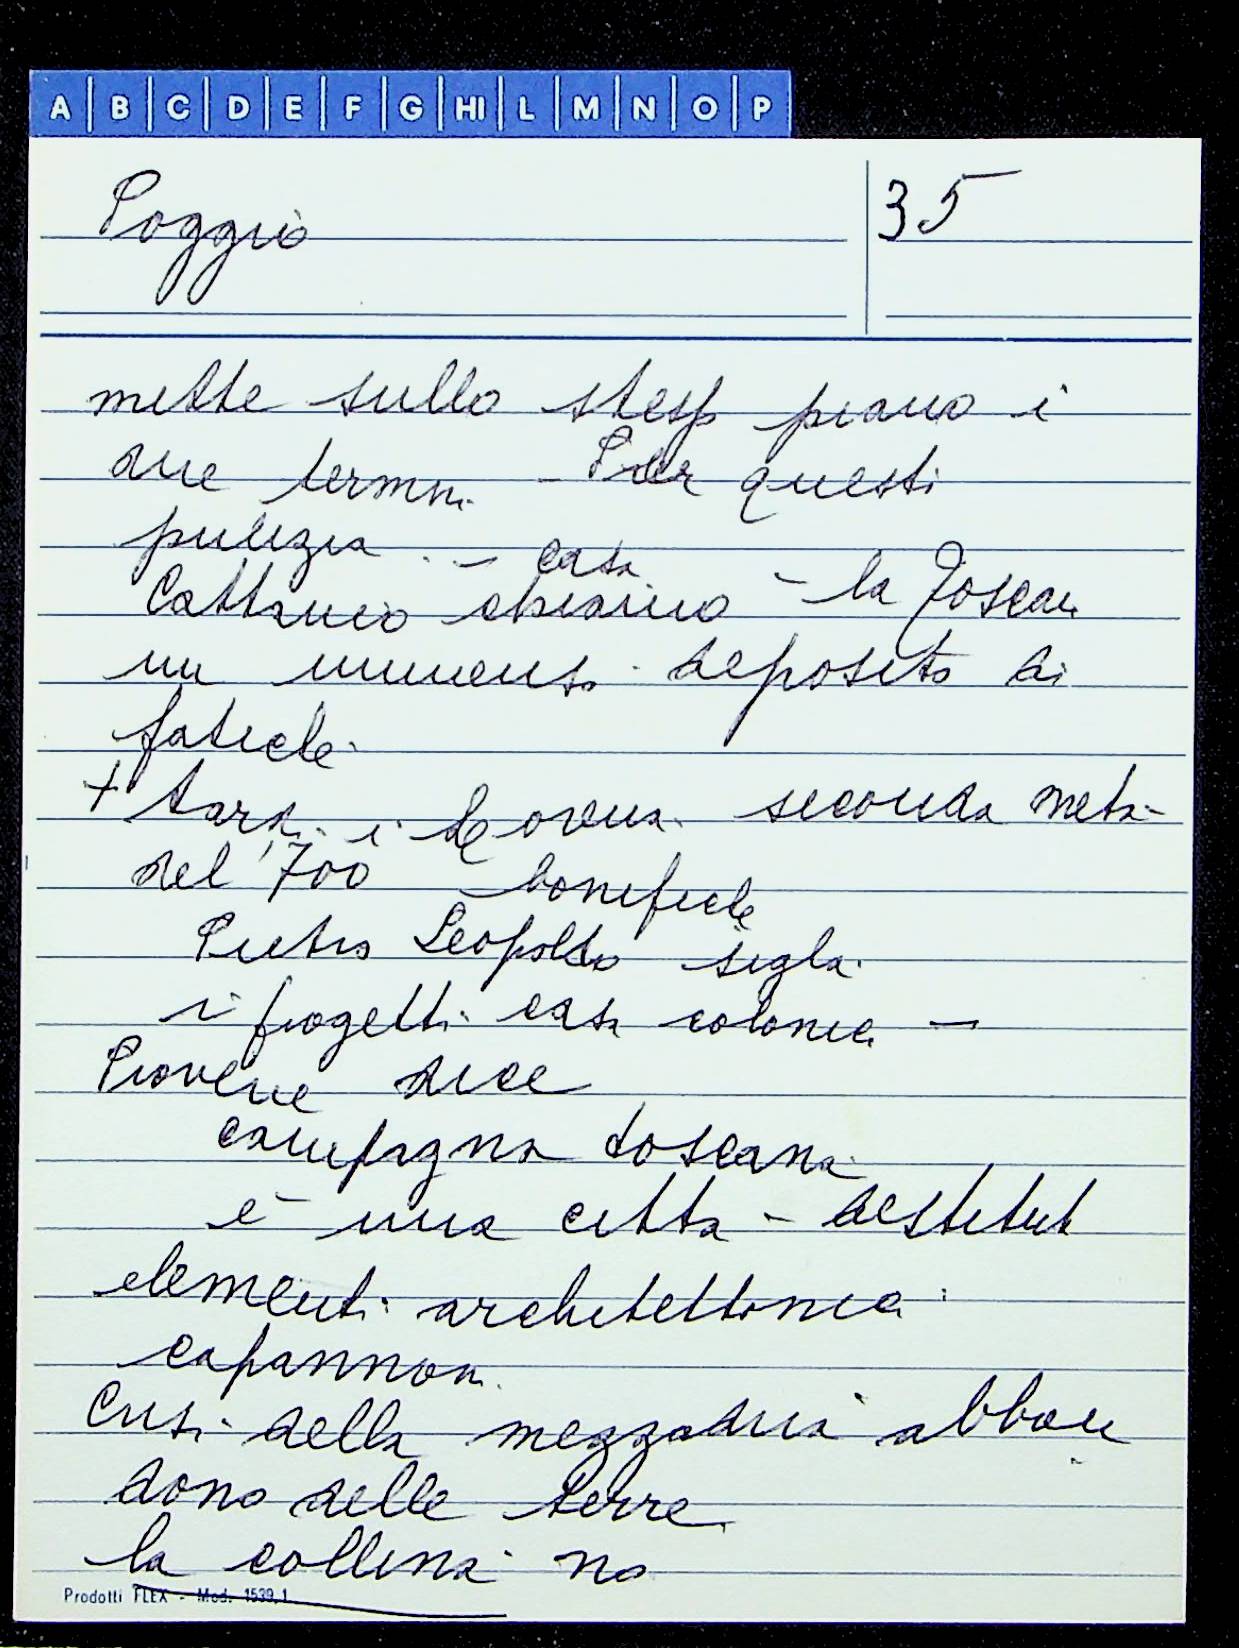 A B C D E F G HI L M N O P
Poggio
35
mette sullo stesso piano i
due termini - Per questi
pulizia - casa
Cattaneo - la Toscana
un immenso deposito di
fatiche
+ tardi seconda metà
del '700 bonifiche
Pietro Leopoldo sigla
i progetti casa colonica -
Piovene dice
campagna toscana
è una città - destituit
elementi architettonici :
capannoni
crisi della mezzadria abban
dono delle terre
la collina no
Prodotti FLEX - Mod. 1539.1